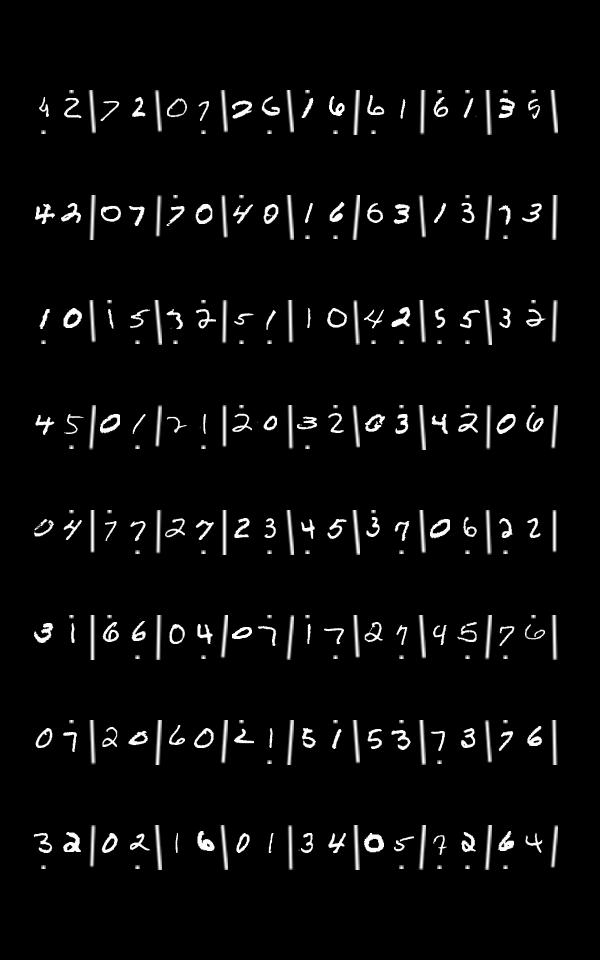 4 2 | 7 2 | 0 7 | 2 6 | 1 6 | 6 1 | 6 1 | 3 5 |
4 2 | 0 7 | 7 0 | 4 0 | 1 6 | 6 3 | 1 3 | 7 3 |
1 0 | 1 5 | 3 2 | 5 1 | 1 0 | 4 2 | 5 5 | 3 2 |
4 5 | 0 1 | 2 1 | 2 0 | 3 2 | 0 3 | 4 2 | 0 6 |
0 4 | 7 7 | 2 7 | 2 3 | 4 5 | 3 7 | 0 6 | 2 2 |
3 1 | 6 6 | 0 4 | 0 7 | 1 7 | 2 7 | 9 5 | 7 6 |
0 7 | 2 0 | 6 0 | 2 1 | 5 1 | 5 3 | 7 3 | 7 6 |
3 2 | 0 2 | 1 6 | 0 1 | 3 4 | 0 5 | 7 2 | 6 4 |